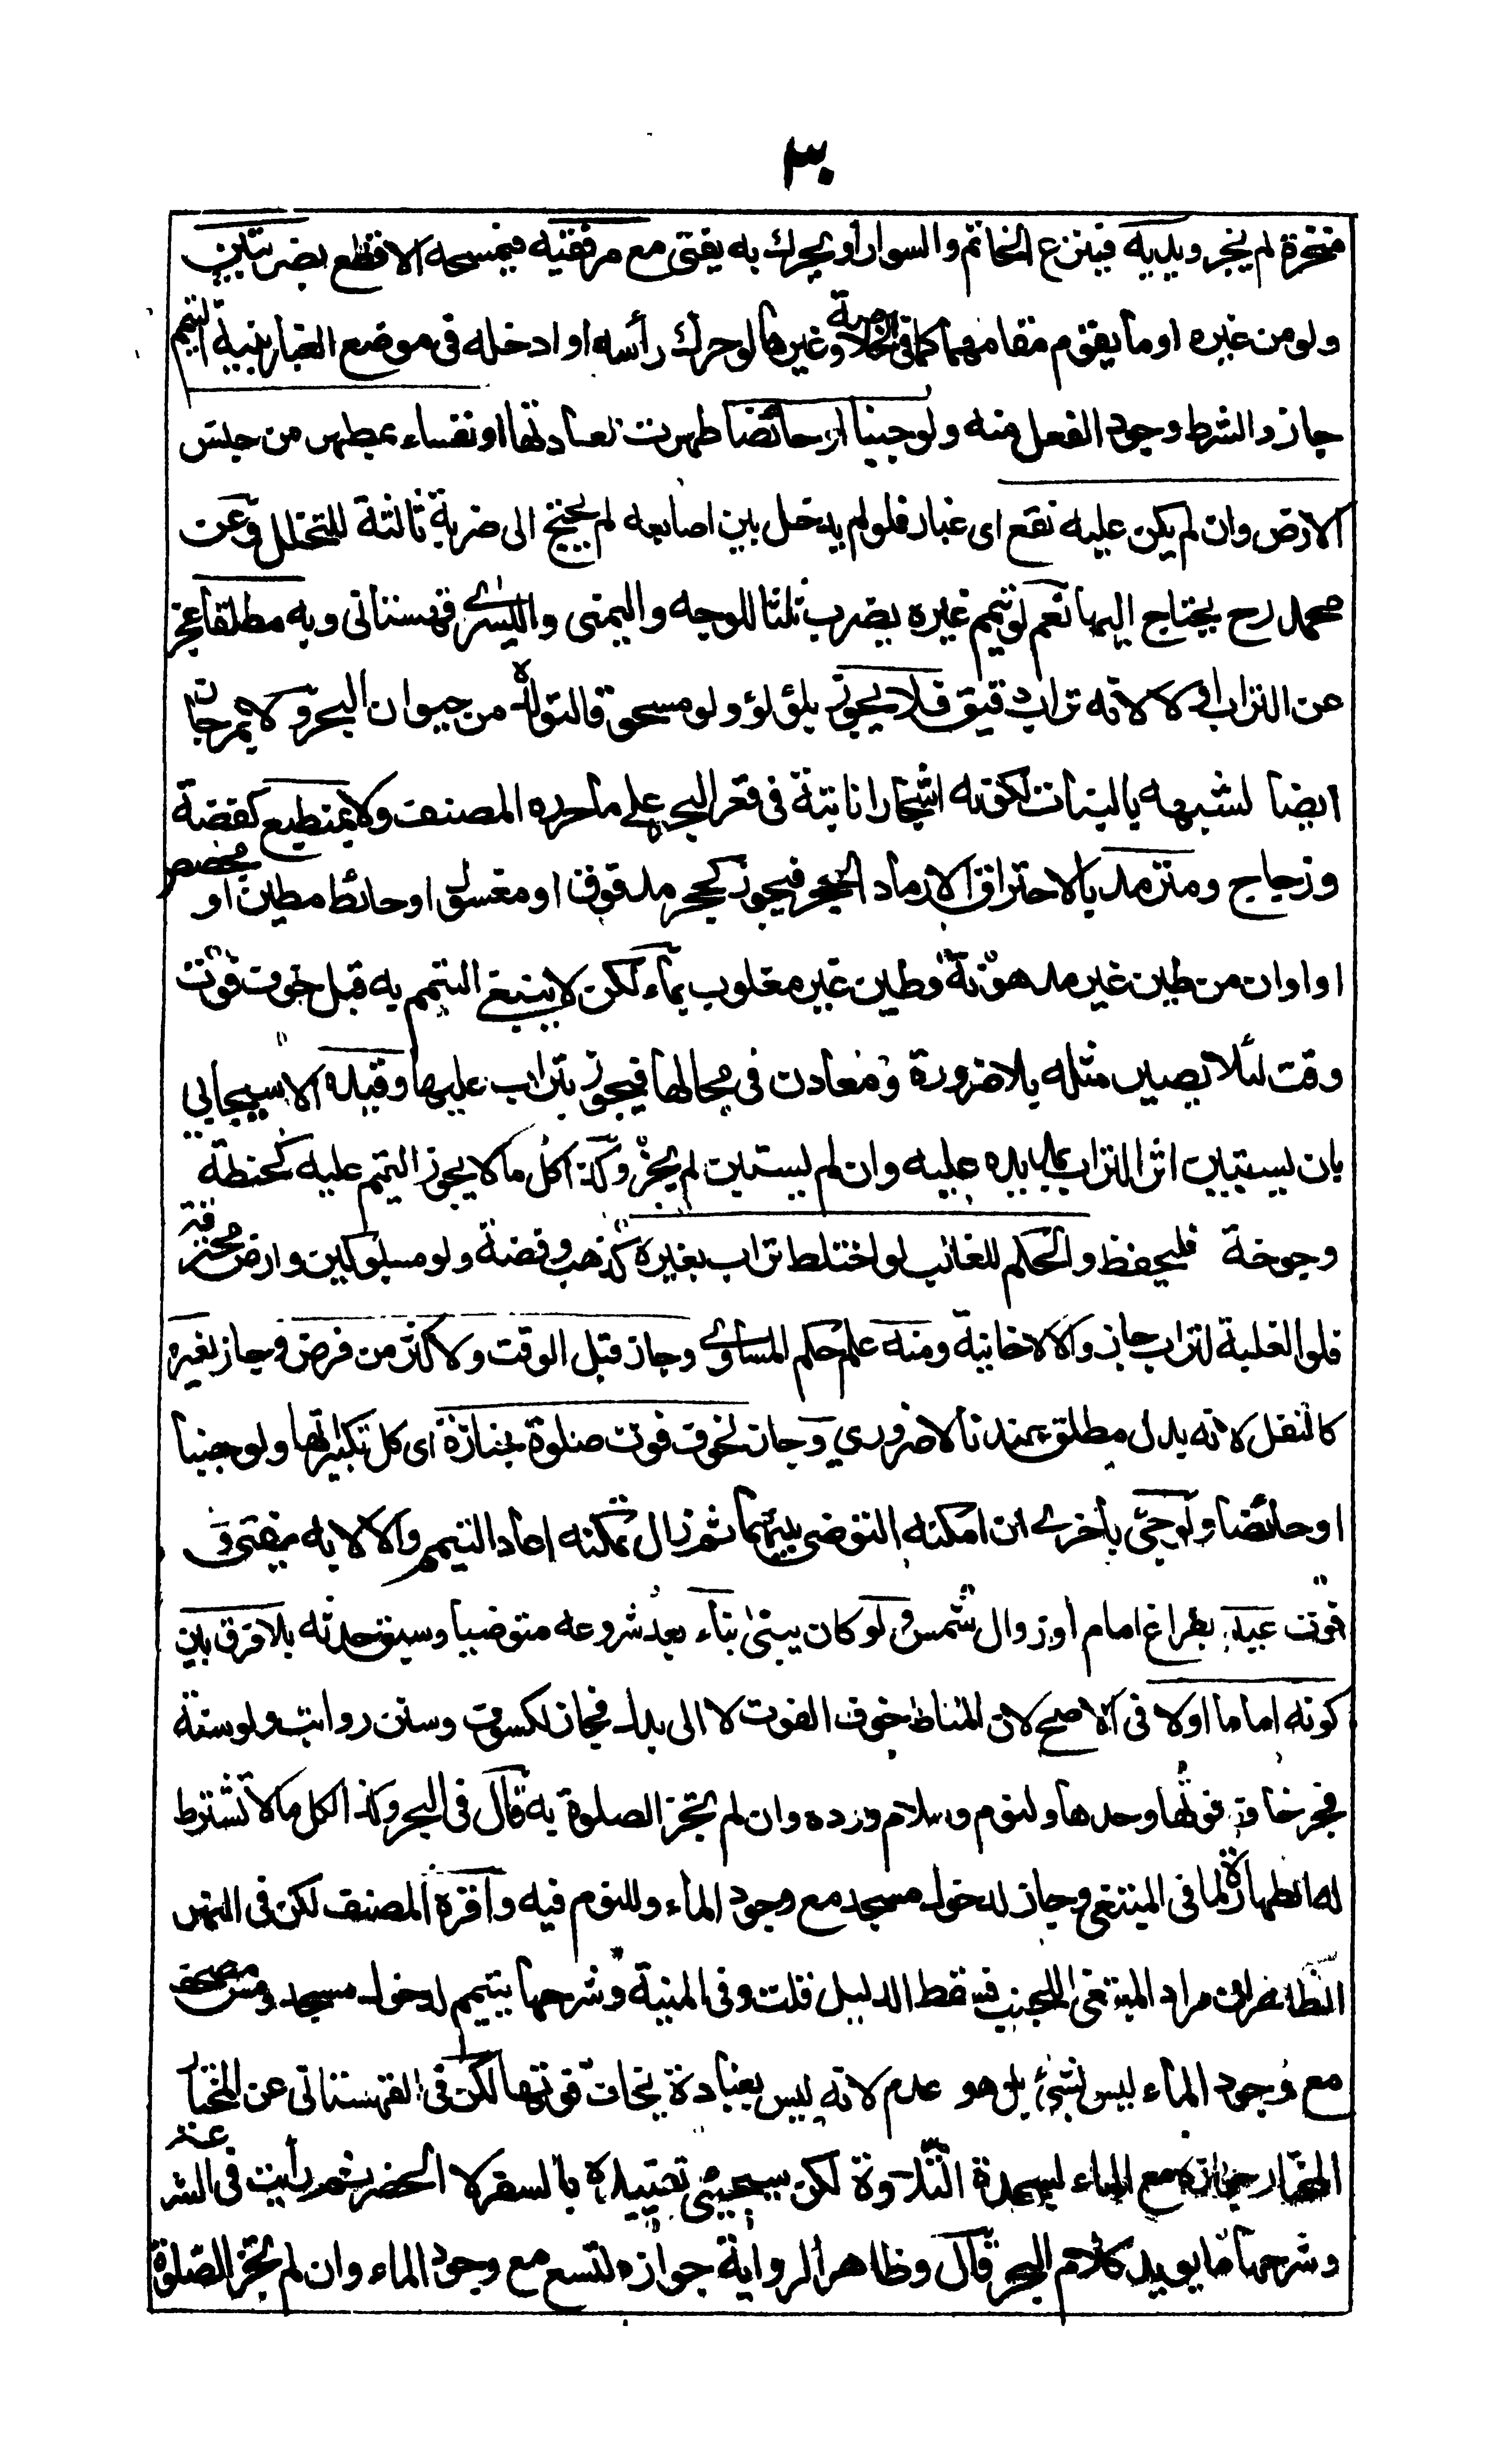 ٣٠
منخرة لم يجز ويديه فينزع الخاتم والسوار أو يحرك به يفتى مع مرفقيه فيمسحه الاقطع بضربتين
ولو من غيره او ما يقوم مقامهما كما فى الخلاصة وغيرها لو حرك رأسه او ادخله فى موضع الغبار بنية التيمم
جاز والشرط وجود الفعل منه ولو جنبا او حائضا طهرت لعادتها او نفساء بمطهر من جنس
الارض وان لم يكن عليه نقع اى غبار فلو لم يدخل بين اصابعه لم يحتج الى ضربة ثالثة للتخلل وعن
محمد رح يحتاج اليها نعم لو تيمم غيره يضرب ثلثا للوجه واليمنى واليسرى قهستانى وبه مطلقا عجز
عن التراب او لا لانه تراب رقيق فلا يجوز بلؤلؤ ولو مسحوقا لتولده من حيوان البحر ولا بمرجان
ايضا لشبهه بالنبات لكونه اشجارا نابتة فى قعر البحر على ما حرره المصنف ولا بمنطبع كفضة
وزجاج ومترمد بالاحتراق الا رماد الحجر فيجوز كحجر مدقوق او مغسول او حائط مطين او مجصص
او اوان من طين غير مدهونة وطين غير مغلوب بماء لكن لا ينبغى التيمم به قبل خوف فوت
وقت لئلا يصير مثله بلا ضرورة ومعادن فى محالها فيجوز بتراب عليها وقيده الاسبيجابي
بان يستبين اثر التراب بمد يده عليه وان لم يستبن لم يجز وكذا كل ما لا يجوز التيمم عليه كحنطة
وجوخة فليحفظ والحكم للغالب لو اختلط تراب بغيره كذهب وفضة ولو مسبوكين وارض محترقة
فلو الغلبة لتراب جاز والا لا خانية ومنه علم حكم المساوى وجاز قبل الوقت ولاكثر من فرض وجاز لغيره
كالنفل لانه بدل مطلق عندنا لا ضروري وجاز لخوف فوت صلوة جنازة اى كل تكبيراتها ولو جنبا
او حائضا ولو جئ بأخرى ان امكنه التوضى بينهما ثم زال تمكنه اعاد التيمم والا لا به يفتى و
فوت عيد بفراغ امام أو زوال شمس ولو كان يبنى بناء بعد شروعه متوضيا وسبق حدثه بلا فرق بين
كونه اماما اولا فى الاصح لان المناط خوف الفوت لا الى بدل فجاز لكسوف وسنن رواتب ولو سنة
فجر خاف فوتها وحدها ولنوم وسلام ورده وان لم تجز الصلوة به قال فى البحر وكذا لكل ما لا تشترط
له الطهارة لما فى المبتغى وجاز لدخول مسجد مع وجود الماء وللنوم فيه واقره المصنف لكن فى النهر
الظاهر ان مراد المبتغى للجنب فسقط الدليل قلت وفى المنية وشرحها بتيمم لدخول مسجد ومس مصحف
مع وجود الماء ليس بشئ بل هو عدم لانه ليس بعبادة يخاف فوتها لكن فى القهستانى عن المختار
المختار جوازه مع الماء لسجدة التلاوة لكن سيجئى تقييده بالسفر لا الحضر ثم رأيت فى الشرعة
وشرحها ما يويد كلام البحر قال وظاهر الرواية جوازه لتسع مع وجود الماء وان لم تجز الصلوة